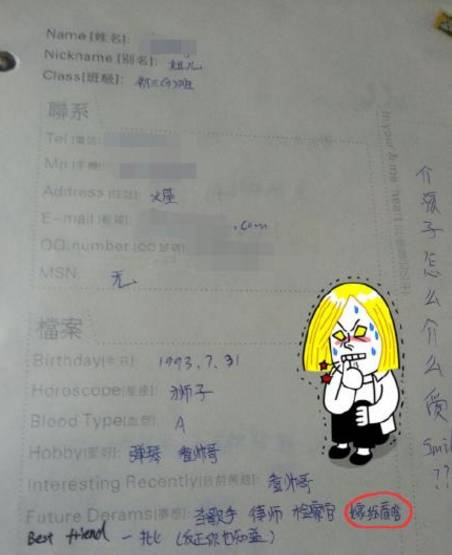 Name [姓名]:
Nickname [別名]: 祖儿
Class[班級]:
聯系
Tel [電話]:
Mp [手機]:
Address [住址]: 火星
E-mail [郵箱]: .com
QQ.number
MSN: 无
檔案
Birthday[生日] 1993.7.31
Horoscope[星座]: 狮子
Blood Type[血型] A
Hobby[愛好]: 弹琴 看帅哥
Interesting Recently[目前興趣]: 看帅哥
Future Derams[夢想]: 当歌手 律师 检察官
Best friend 一批 (反正你也知道)
In your & me heart
介孩子怎么介么
Smil
??